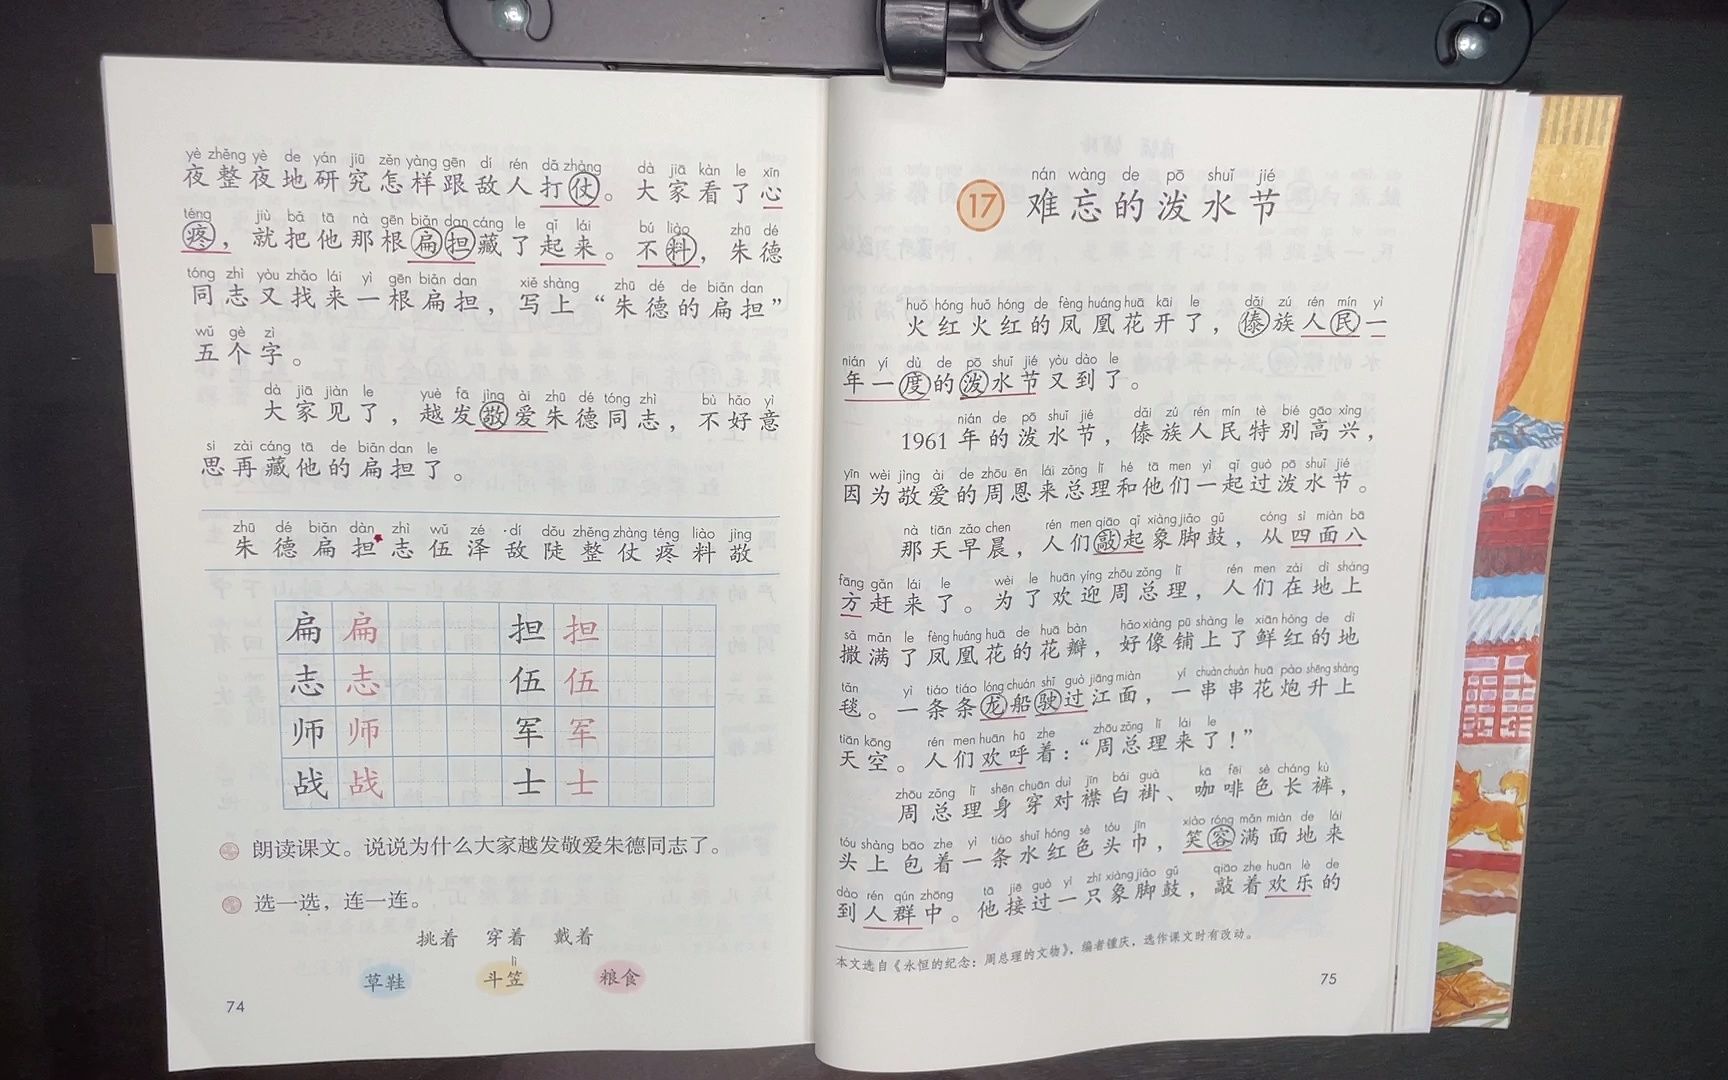 yè zhěng yè de yán jiū zěn yàng gēn dí rén dǎ zhàng dà jiā kàn le xīn
夜整夜地研究怎样跟敌人打仗。大家看了心
téng jiù bǎ tā nà gēn biǎn dan cáng le qǐ lái bú liào zhū dé
疼，就把他那根扁担藏了起来。不料，朱德
tóng zhì yòu zhǎo lái yì gēn biǎn dan xiě shàng zhū dé de biǎn dan
同志又找来一根扁担，写上“朱德的扁担”
wǔ gè zì
五个字。
dà jiā jiàn le yuè fā jìng ài zhū dé tóng zhì bù hǎo yì
大家见了，越发敬爱朱德同志，不好意
si zài cáng tā de biǎn dan le
思再藏他的扁担了。
zhū dé biǎn dàn zhì wǔ zé dí dǒu zhěng zhàng téng liào jìng
朱德扁担志伍泽敌陡整仗疼料敬
扁 扁 担 担
志 志 伍 伍
师 师 军 军
战 战 士 士
朗读课文。说说为什么大家越发敬爱朱德同志了。
选一选，连一连。
挑着 穿着 戴着
lì
草鞋 斗笠 粮食
74
nán wàng de pō shuǐ jié
17 难忘的泼水节
huǒ hóng huǒ hóng de fèng huáng huā kāi le dǎi zú rén mín yì
火红火红的凤凰花开了，傣族人民一
nián yí dù de pō shuǐ jié yòu dào le
年一度的泼水节又到了。
nián de pō shuǐ jié dǎi zú rén mín tè bié gāo xìng
1961年的泼水节，傣族人民特别高兴，
yīn wèi jìng ài de zhōu ēn lái zǒng lǐ hé tā men yì qǐ guò pō shuǐ jié
因为敬爱的周恩来总理和他们一起过泼水节。
nà tiān zǎo chen rén men qiāo qǐ xiàng jiǎo gǔ cóng sì miàn bā
那天早晨，人们敲起象脚鼓，从四面八
fāng gǎn lái le wèi le huān yíng zhōu zǒng lǐ rén men zài dì shàng
方赶来了。为了欢迎周总理，人们在地上
sǎ mǎn le fèng huáng huā de huā bàn hǎo xiàng pū shàng le xiān hóng de dì
撒满了凤凰花的花瓣，好像铺上了鲜红的地
tǎn yì tiáo tiáo lóng chuán shǐ guò jiāng miàn yí chuàn chuàn huā pào shēng shàng
毯。一条条龙船驶过江面，一串串花炮升上
tiān kōng rén men huān hū zhe zhōu zǒng lǐ lái le
天空。人们欢呼着：“周总理来了！”
zhōu zǒng lǐ shēn chuān duì jīn bái guà kā fēi sè cháng kù
周总理身穿对襟白褂、咖啡色长裤，
tóu shàng bāo zhe yì tiáo shuǐ hóng sè tóu jīn xiào róng mǎn miàn de lái
头上包着一条水红色头巾，笑容满面地来
dào rén qún zhōng tā jiē guò yì zhī xiàng jiǎo gǔ qiāo zhe huān lè de
到人群中。他接过一只象脚鼓，敲着欢乐的
本文选自《永恒的纪念：周总理的文物》，编者锺庆，选作课文时有改动。
75